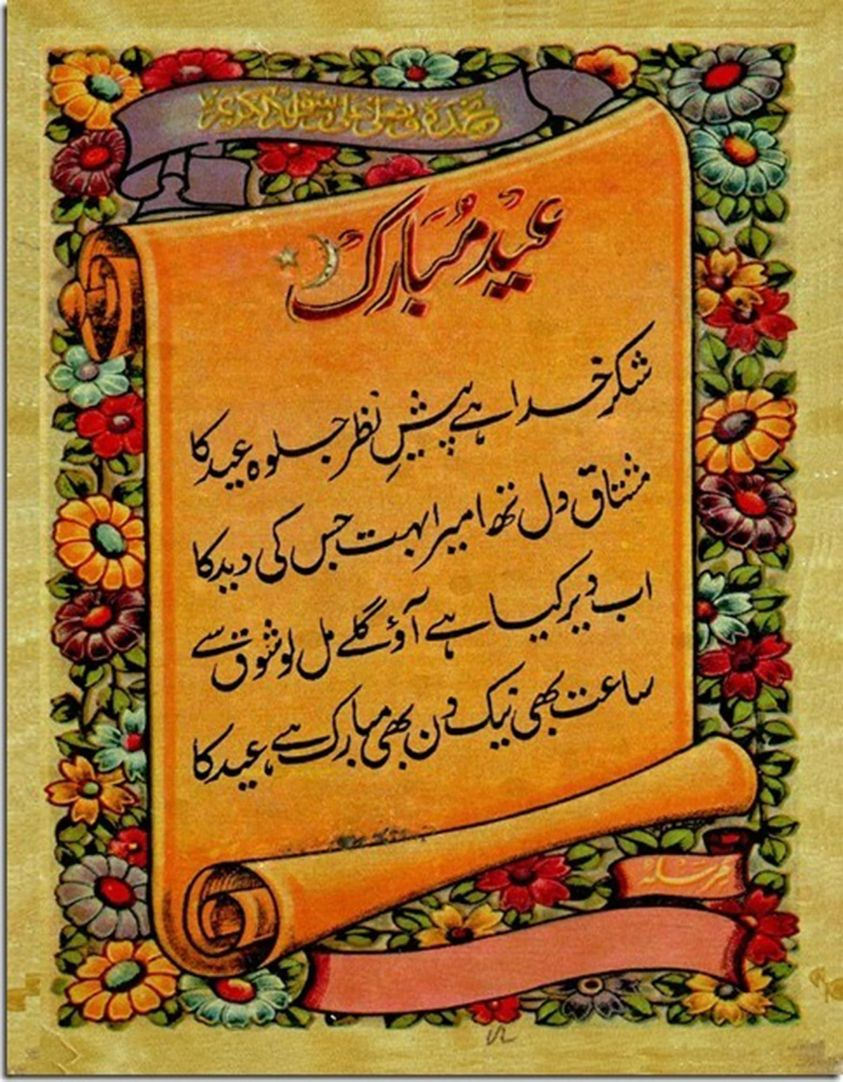 نحمدہ و نصلی علی رسولہ الکریم
عید مُبَارک
شکر خدا ہے پیشِ نظر جلوہ عید کا
مشتاق دل تھا میرا بہت جس کی دید کا
اب دیر کیا ہے آؤ گلے مل لو شوق سے
ساعت بھی نیک دن بھی مبارک ہے عید کا
مرسلہ